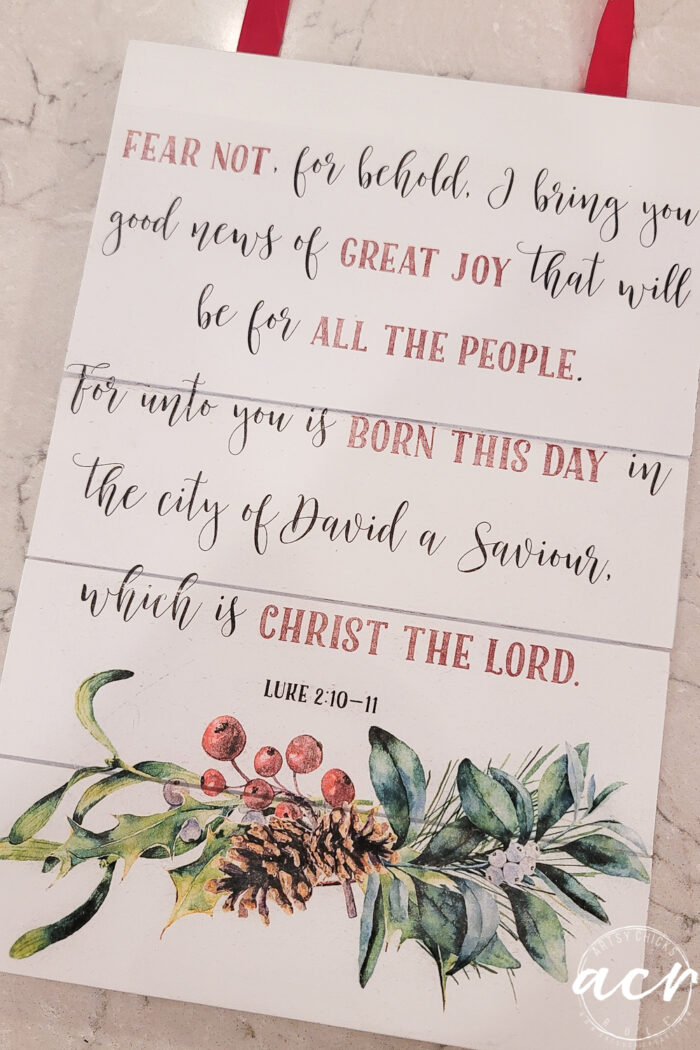 FEAR NOT, for behold, I bring you
good news of GREAT JOY that will
be for ALL THE PEOPLE.
For unto you is BORN THIS DAY in
the city of David a Saviour,
which is CHRIST THE LORD.
LUKE 2:10–11
ARTSY CHICKS
acr
RULE